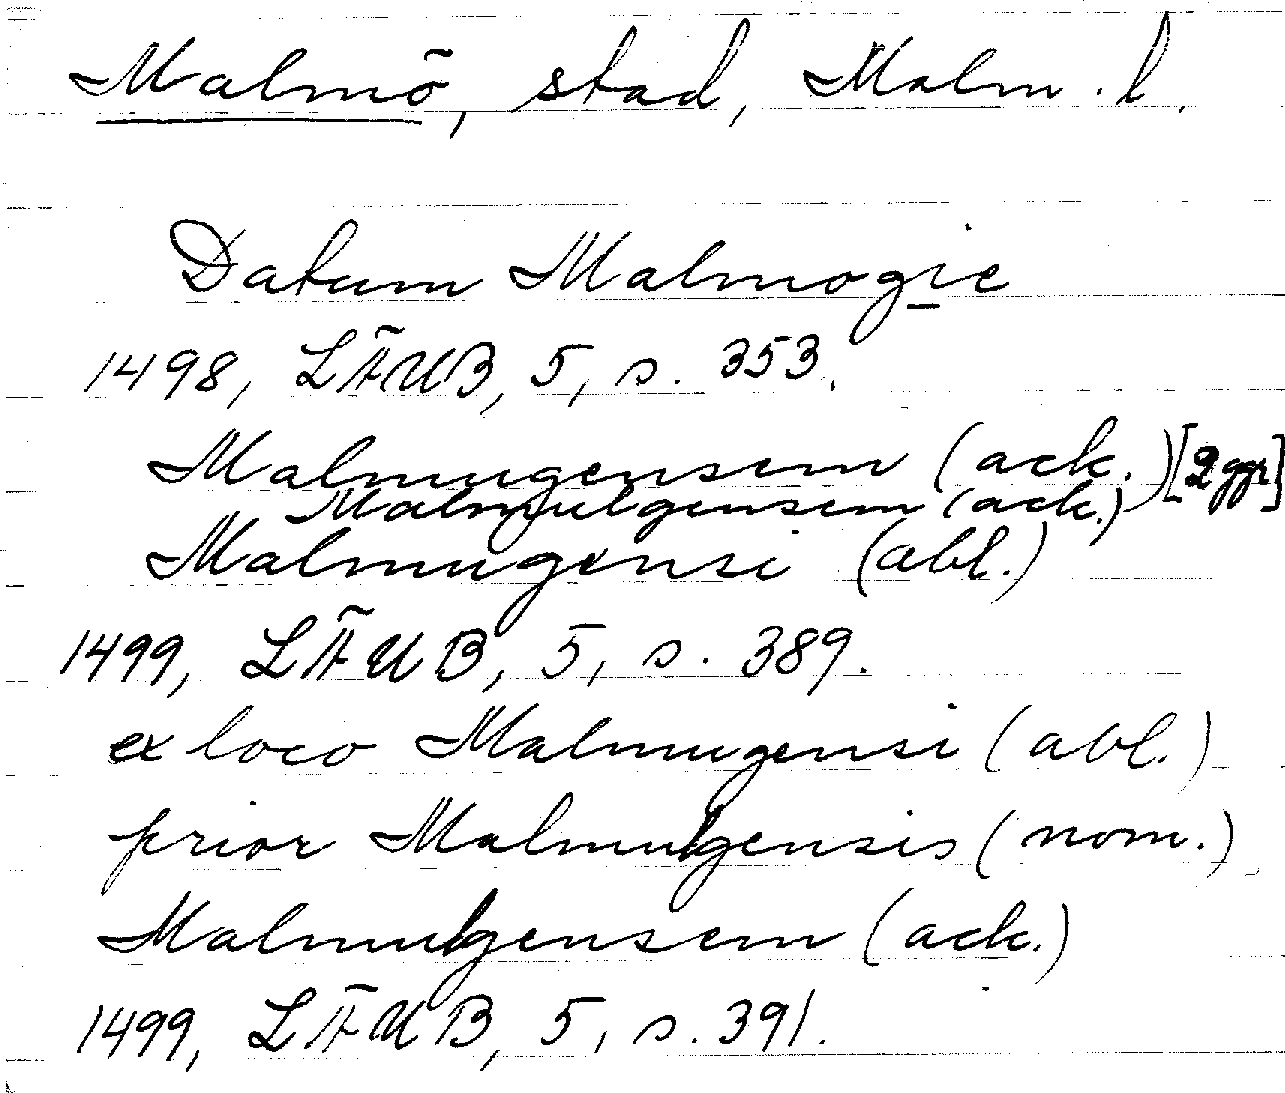 Malmö, stad, Malm. l.
Datum Malmogie
1498, LÄUB, 5, s. 353.
Malmugensem (ack.) [2 ggr]
Malmulgensem (ack.)
Malmugensi (abl.)
1499, LÄUB, 5, s. 389.
ex loco Malmugensi (abl.)
prior Malmulgensis (nom.)
Malmulgensem (ack.)
1499, LÄUB, 5, s. 391.